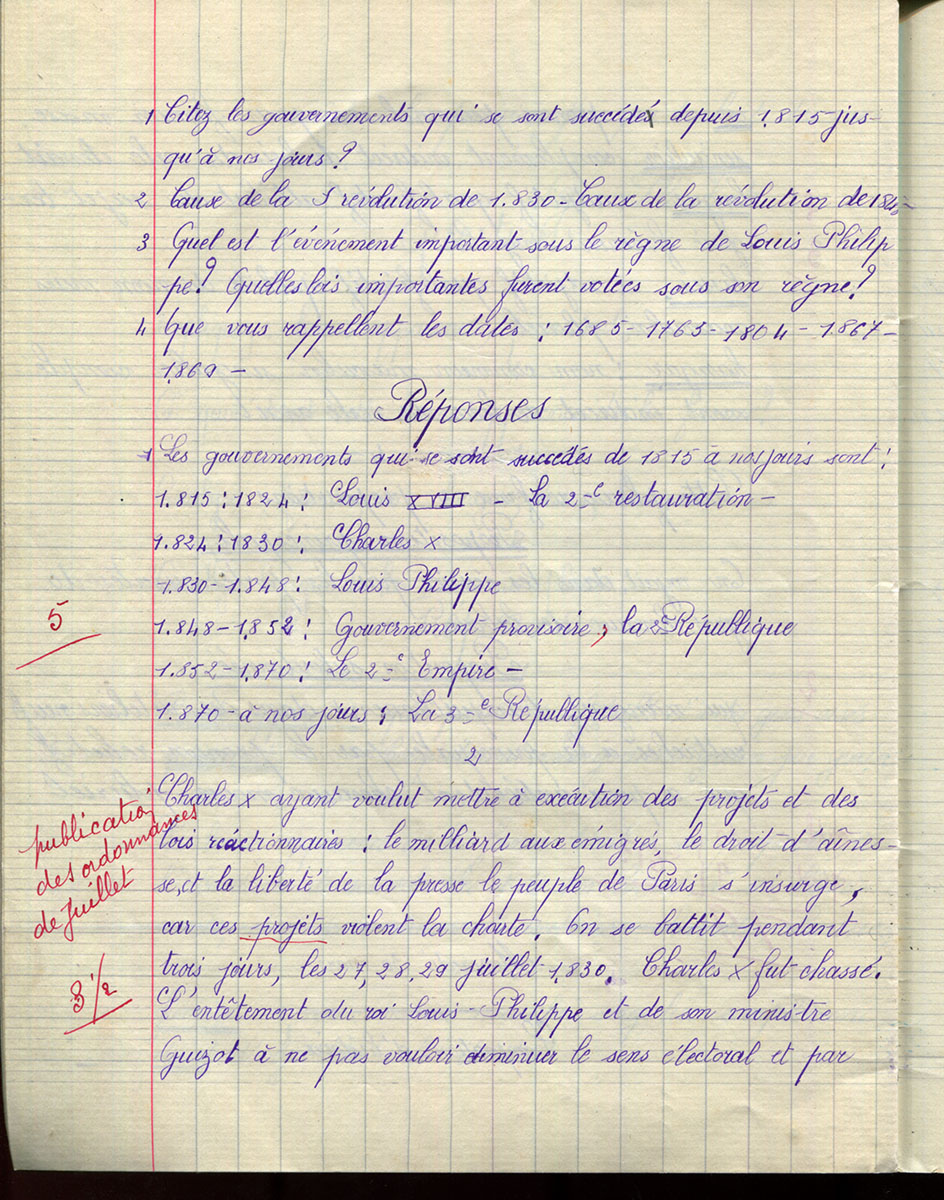 1 Citez les gouvernements qui se sont succédés depuis 1.815-jus-
qu'à nos jours ?
2 Cause de la révolution de 1.830 - Cause de la révolution de 1848-
3 Quel est l'événement important sous le règne de Louis Philip
pe ? Quelles lois importantes furent votées sous son règne ?
4 Que vous rappellent les dates : 1685 - 1763 - 1804 - 1.867 -
1.869 -
Réponses
1 Les gouvernements qui se sont succédés de 1815 à nos jours sont :
1.815 : 1824 : Louis XVIII - La 2e restauration -
1.824 : 1830 : Charles X
1.830 - 1.848 : Louis Philippe
5
1.848 - 1.852 : Gouvernement provisoire, la 2e République
1.852 - 1.870 : Le 2e Empire -
1.870 - à nos jours : La 3e République
2
Charles X ayant voulut mettre à exécution des projets et des
publication
des ordonnances
de juillet
lois réactionnaires : le milliard aux émigrés, le droit d'aînes-
se, et la liberté de la presse le peuple de Paris s'insurge,
car ces projets violent la charte. On se battit pendant
trois jours, les 27, 28, 29 juillet 1.830. Charles X fut chassé.
3 1/2
L'entêtement du roi Louis-Philippe et de son ministre
Guizot à ne pas vouloir diminuer le sens électoral et par